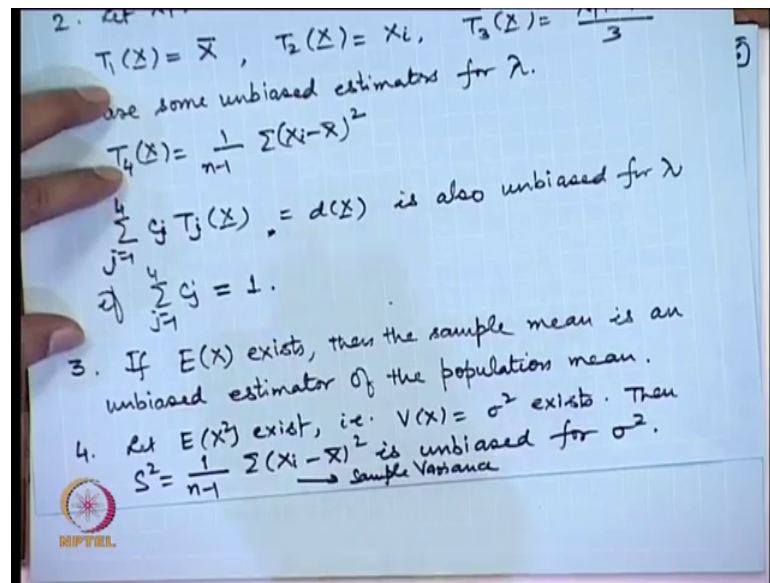 2. Let
T₁(X) = X̄ , T₂(X) = Xi, T₃(X) = 3
are some unbiased estimators for λ.
T₄(X) = 1/(n-1) Σ(Xi-X̄)²
4 Σ j=1 cj Tj(X) = d(X) is also unbiased for λ
if 4 Σ j=1 cj = 1.
3. If E(X) exists, then the sample mean is an
unbiased estimator of the population mean.
4. Let E(X²) exist, i.e. V(X) = σ² exists. Then
S² = 1/(n-1) Σ(Xi - X̄)² is unbiased for σ².
→ Sample Variance
NPTEL